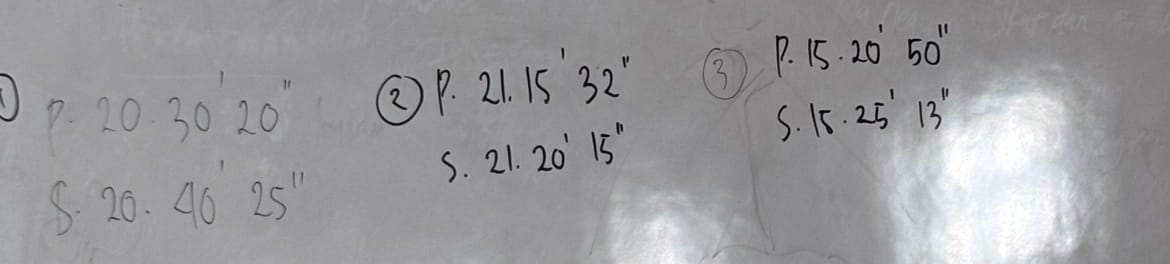 ① P. 20.30' 20"
S. 20. 40' 25"
② P. 21.15' 32"
S. 21. 20' 15"
③ P. 15.20' 50"
S. 15.25' 13"